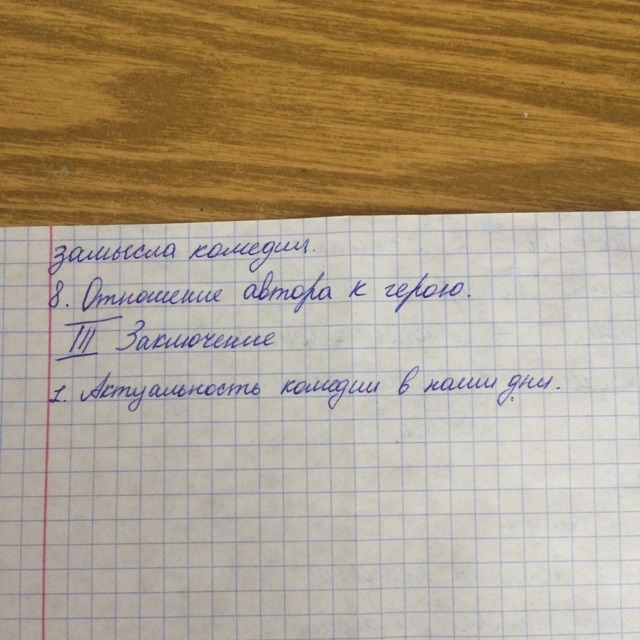 замысла комедии.
8. Отношение автора к герою.
III Заключение
1. Актуальность комедии в наши дни.